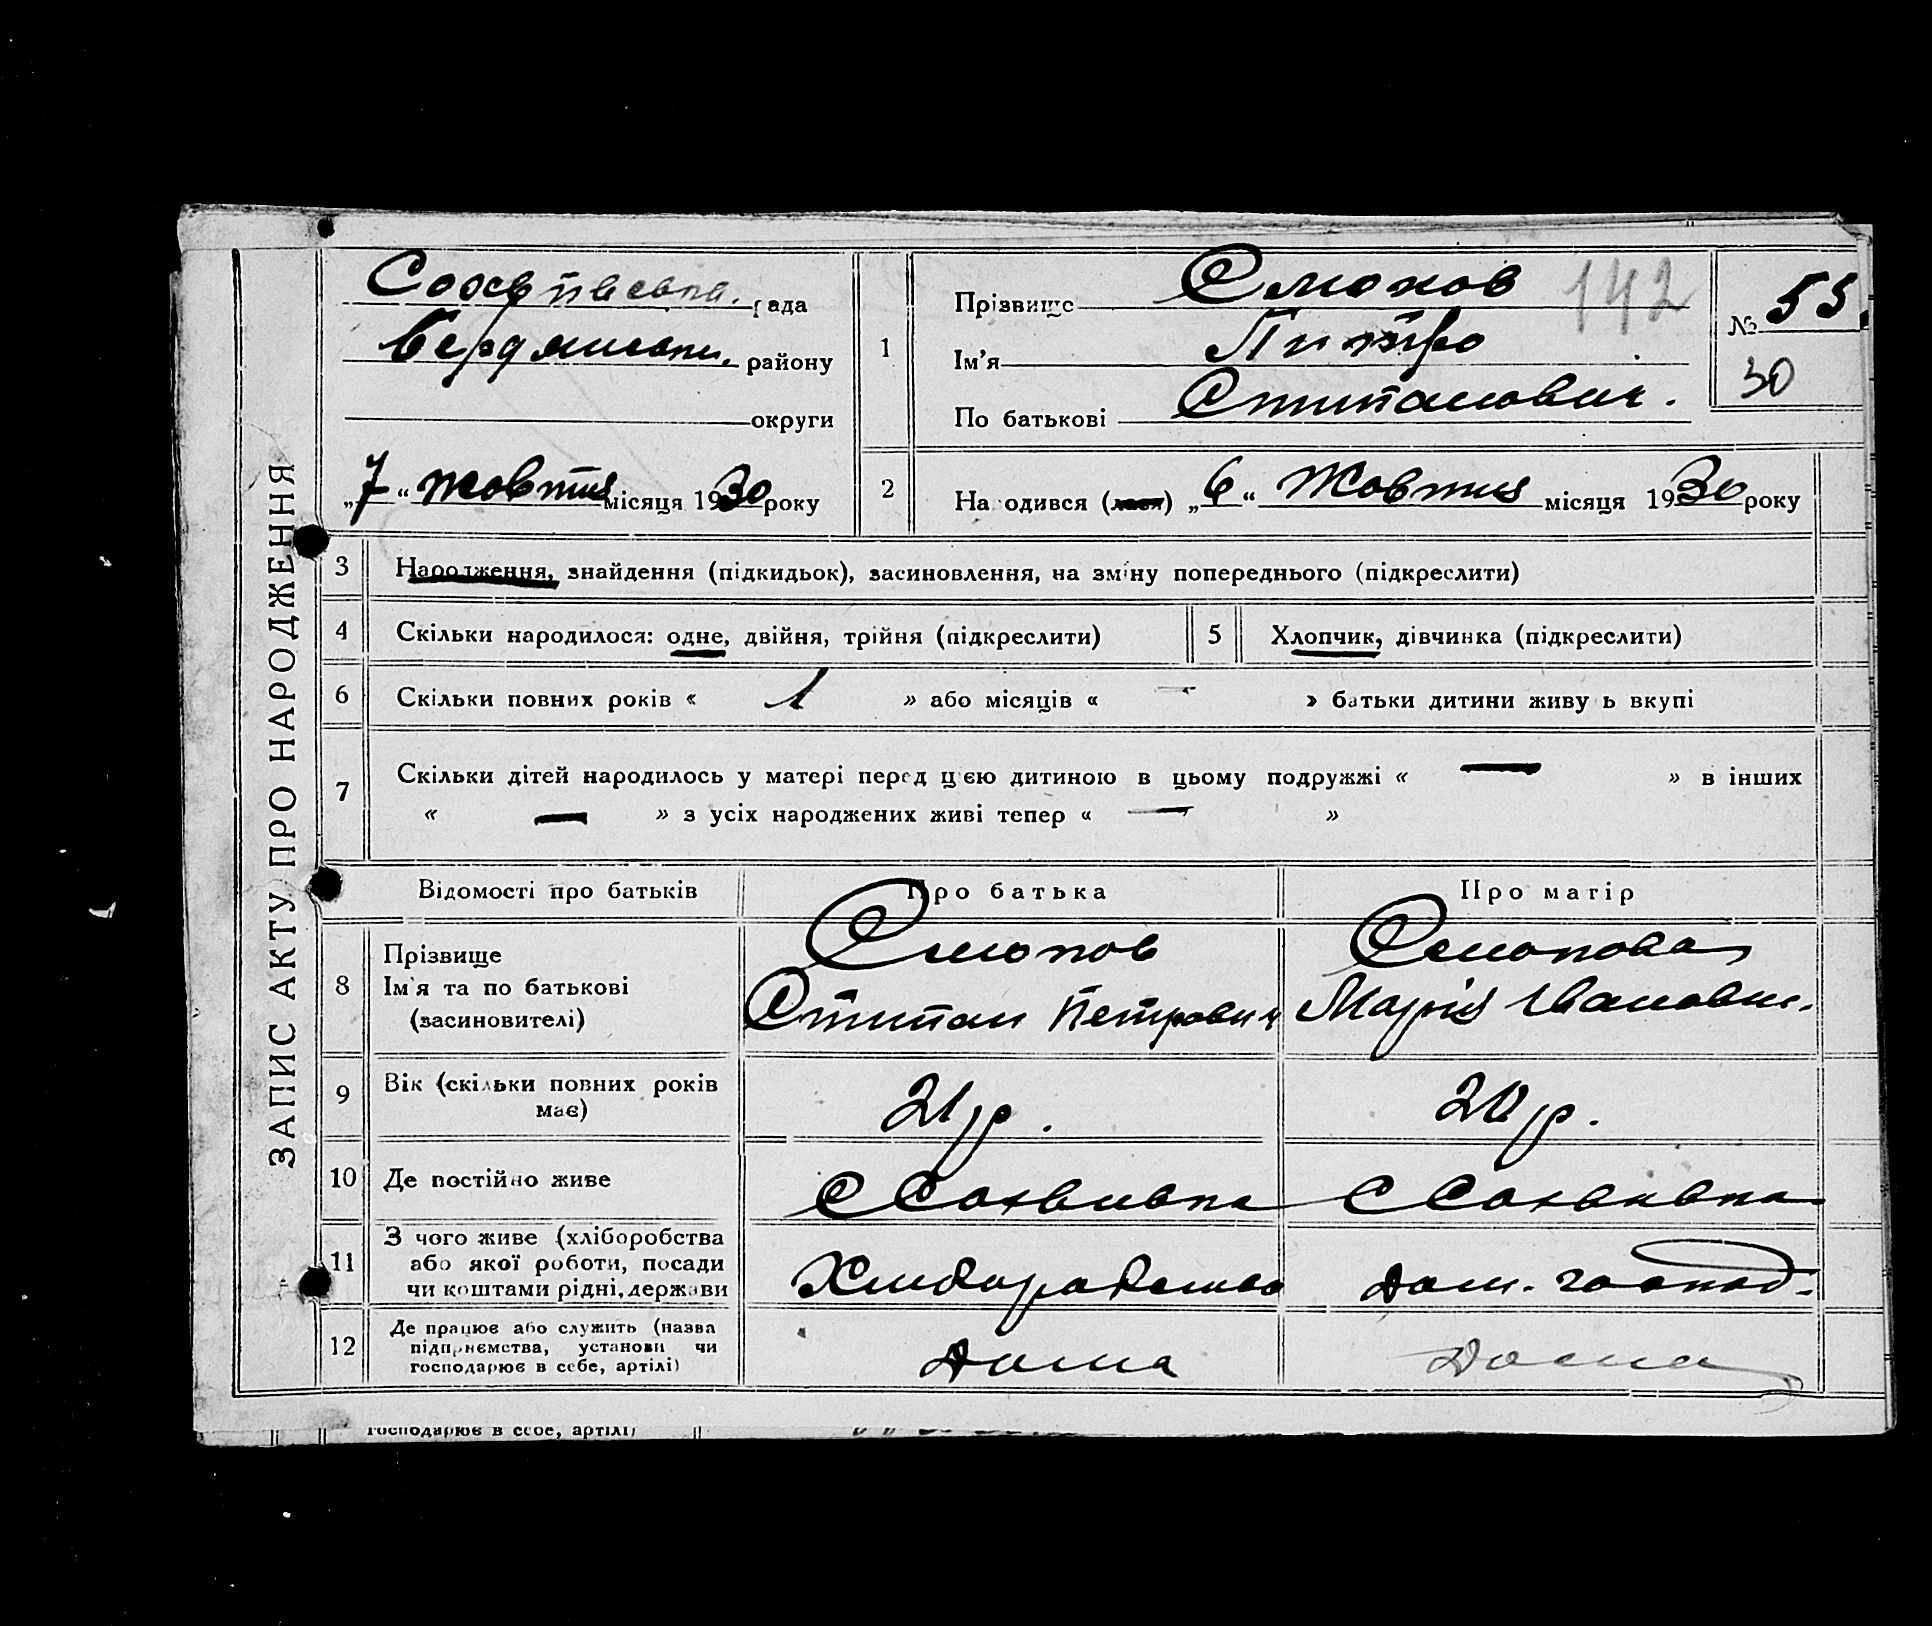 ЗАПИС АКТУ ПРО НАРОДЖЕННЯ
рада
району
округи
„7“ жовтня місяця 1930 року
1
Прізвище
142
Ім'я Питро
По батькові Стипанович.
№ 55.
30
2
Народився (лася) „6“ Жовтня місяця 1930 року
3 Народження, знайдення (підкидьок), засиновлення, на зміну попереднього (підкреслити)
4 Скільки народилося: одне, двійня, трійня (підкреслити)
5 Хлопчик, дівчинка (підкреслити)
6 Скільки повних років « 1 » або місяців « — » батьки дитини живуть вкупі
7 Скільки дітей народилось у матері перед цією дитиною в цьому подружжі « — » в інших
« — » з усіх народжених живі тепер « — »
Відомості про батьків Про батька Про матір
8 Прізвище
Ім'я та по батькові
(засиновителі)
Стипан Петрович Марія Івановн.
9 Вік (скільки повних років
має)
21 р. 20 р.
10 Де постійно живе
11 З чого живе (хліборобства
або якої роботи, посади
чи коштами рідні, держави
Дом. господ.
12 Де працює або служить (назва
підприємства, установи чи
господарює в себе, артілі)
Дома Дома
господарює в себе, артілі)